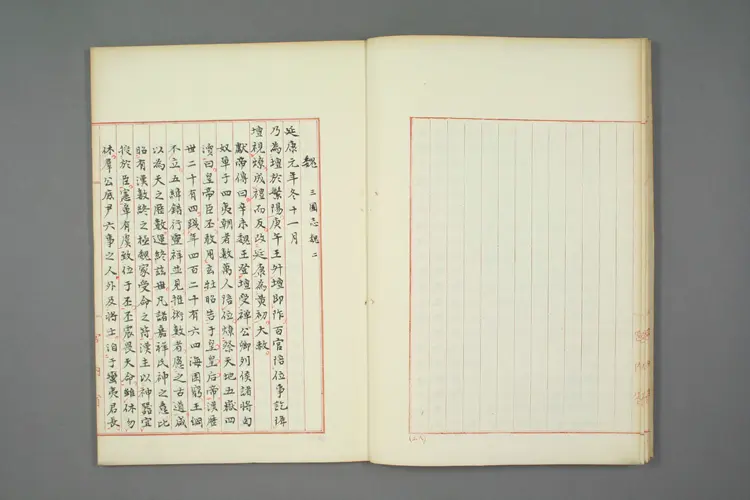 魏 三國志魏二
延康元年冬十一月
乃為壇於繁陽庚午王升壇即阼百官陪位事訖降
壇視燎成禮而反改延康為黃初大赦
獻帝傳曰辛未魏王登壇受禪公卿列侯諸將匈
奴單于四夷朝者數萬人陪位燎祭天地五嶽四
瀆曰皇帝臣丕敢用玄牡昭告于皇皇后帝漢歷
世二十有四踐年四百二十有六四海困窮王綱
不立五緯錯行靈祥並見推術數者慮之古道咸
以為天之歷數運終茲世凡諸嘉祥民神之意比
昭有漢數終之極魏家受命之符漢主以神器宜
授於臣憲章有虞致位于丕丕震畏天命雖休勿
休羣公庶尹六事之人外及將士洎于蠻夷君長